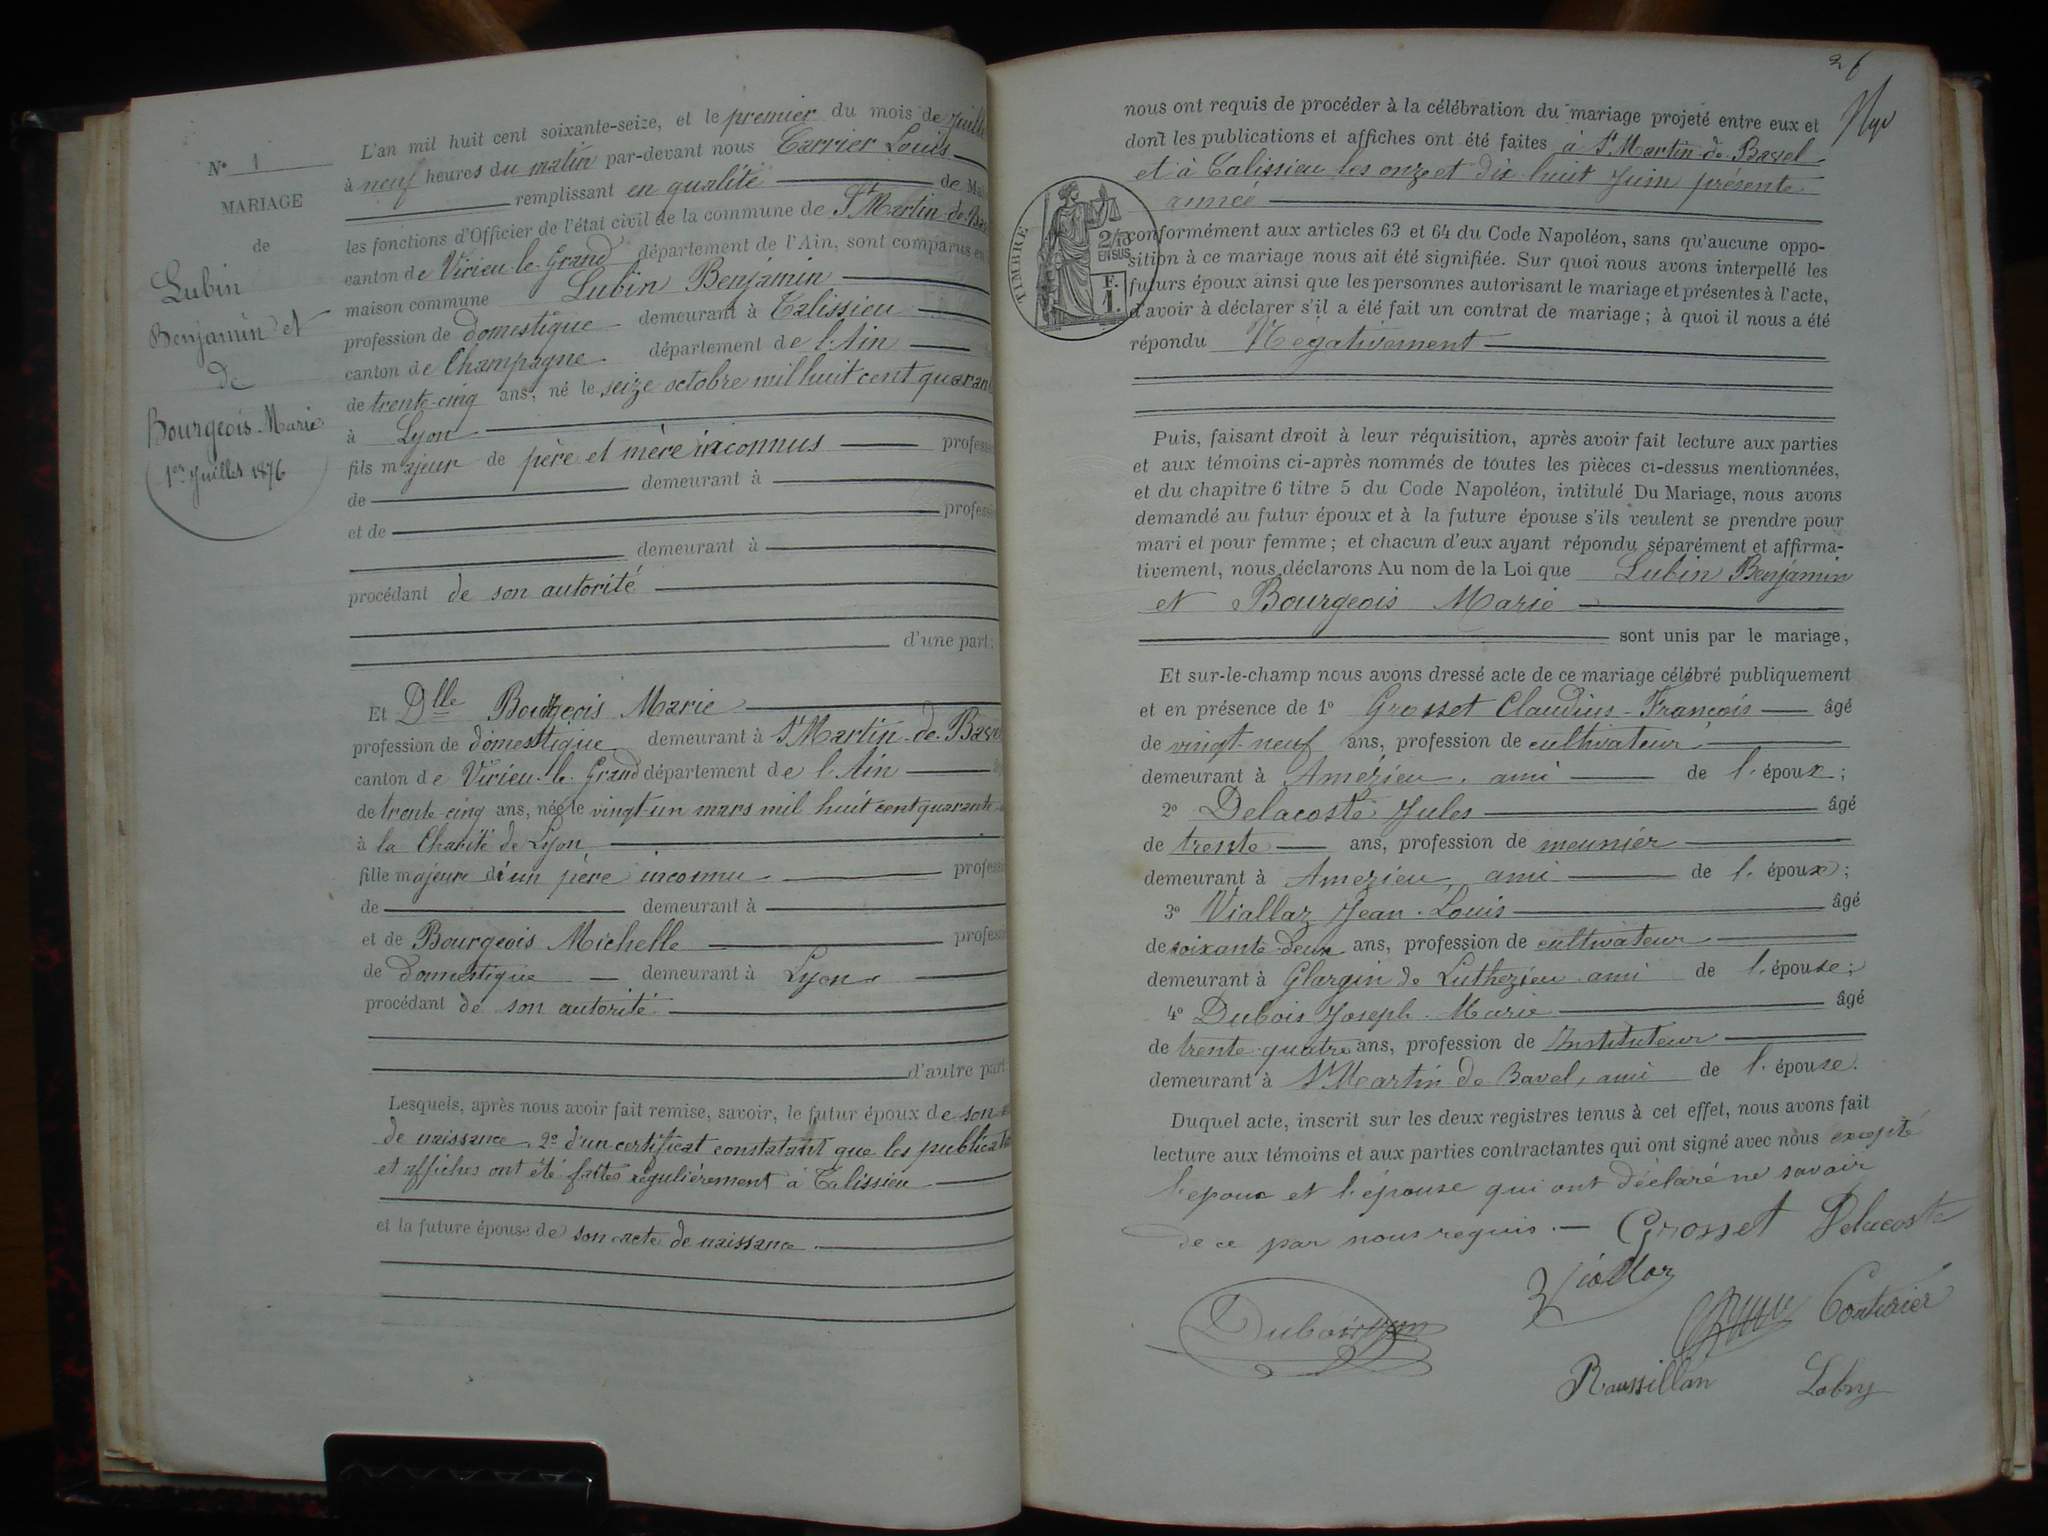 N° 1
MARIAGE
de
Lubin
Benjamin et
de
Bourgeois Marie
1er Juillet 1876
L'an mil huit cent soixante-seize, et le premier du mois de Juill
à neuf heures du matin par-devant nous Carrier Louis
remplissant en qualité de Mai
les fonctions d'Officier de l'état civil de la commune de St Martin-de-Bav
canton de Virieu-le-Grand département de l'Ain, sont comparus en
maison commune Lubin Benjamin
profession de domestique demeurant à Talissieu
canton de Champagne département de l'Ain
de trente-cinq ans, né le seize octobre mil huit cent quaran
à Lyon
fils majeur de père et mère inconnus profess
de demeurant à
et de profess
demeurant à
procédant de son autorité
d'une part;
Et Dlle Bourgeois Marie
profession de domestique demeurant à St Martin-de-Bav
canton de Virieu-le-Grand département de l'Ain
de trente-cinq ans, née le vingt-un mars mil huit cent quarante
à la Charité de Lyon
fille majeure d'un père inconnu profess
de demeurant à
et de Bourgeois Michelle profess
de domestique demeurant à Lyon
procédant de son autorité
d'autre part.
Lesquels, après nous avoir fait remise, savoir, le futur époux de son
de naissance, 2° d'un certificat constatant que les publicat
et affiches ont été faites régulièrement à Talissieu
et la future épouse de son acte de naissance
26
nous ont requis de procéder à la célébration du mariage projeté entre eux et
dont les publications et affiches ont été faites à St Martin-de-Bavel
et à Talissieu les onze et dix-huit Juin présente
année
TIMBRE
2/10
EN SUS
F.
1.
conformément aux articles 63 et 64 du Code Napoléon, sans qu'aucune oppo-
sition à ce mariage nous ait été signifiée. Sur quoi nous avons interpellé les
futurs époux ainsi que les personnes autorisant le mariage et présentes à l'acte,
d'avoir à déclarer s'il a été fait un contrat de mariage; à quoi il nous a été
répondu Négativement
Puis, faisant droit à leur réquisition, après avoir fait lecture aux parties
et aux témoins ci-après nommés de toutes les pièces ci-dessus mentionnées,
et du chapitre 6 titre 5 du Code Napoléon, intitulé Du Mariage, nous avons
demandé au futur époux et à la future épouse s'ils veulent se prendre pour
mari et pour femme; et chacun d'eux ayant répondu séparément et affirma-
tivement, nous déclarons Au nom de la Loi que Lubin Benjamin
et Bourgeois Marie
sont unis par le mariage,
Et sur-le-champ nous avons dressé acte de ce mariage célébré publiquement
et en présence de 1° Grosset Claudius-François âgé
de vingt-neuf ans, profession de cultivateur
demeurant à Amézieu, ami de l'époux;
2° Delacoste Jules âgé
de trente ans, profession de meunier
demeurant à Amezieu, ami de l'époux;
3° Viallaz Jean-Louis âgé
de soixante-deux ans, profession de cultivateur
demeurant à Glargin de Luthezieu ami de l'épouse;
4° Dubois Joseph-Marie âgé
de trente-quatre ans, profession de Instituteur
demeurant à St Martin de Bavel, ami de l'épouse.
Duquel acte, inscrit sur les deux registres tenus à cet effet, nous avons fait
lecture aux témoins et aux parties contractantes qui ont signé avec nous excepté
l'époux et l'épouse qui ont déclaré ne savoir
de ce par nous requis. Grosset Delacoste
Viallaz
Dubois Couturier
Roussillon Labry